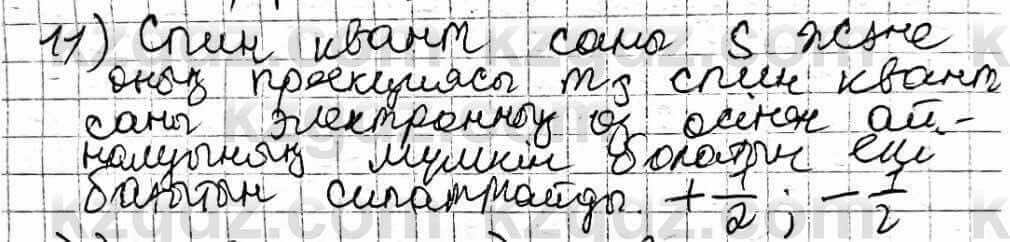 11) Спин квант саны S және
оның проекциясы ms спин квант
саны электронның өз осінен ай-
налуының мүмкін болатын екі
бағытын сипаттайды. + 1/2 ; - 1/2